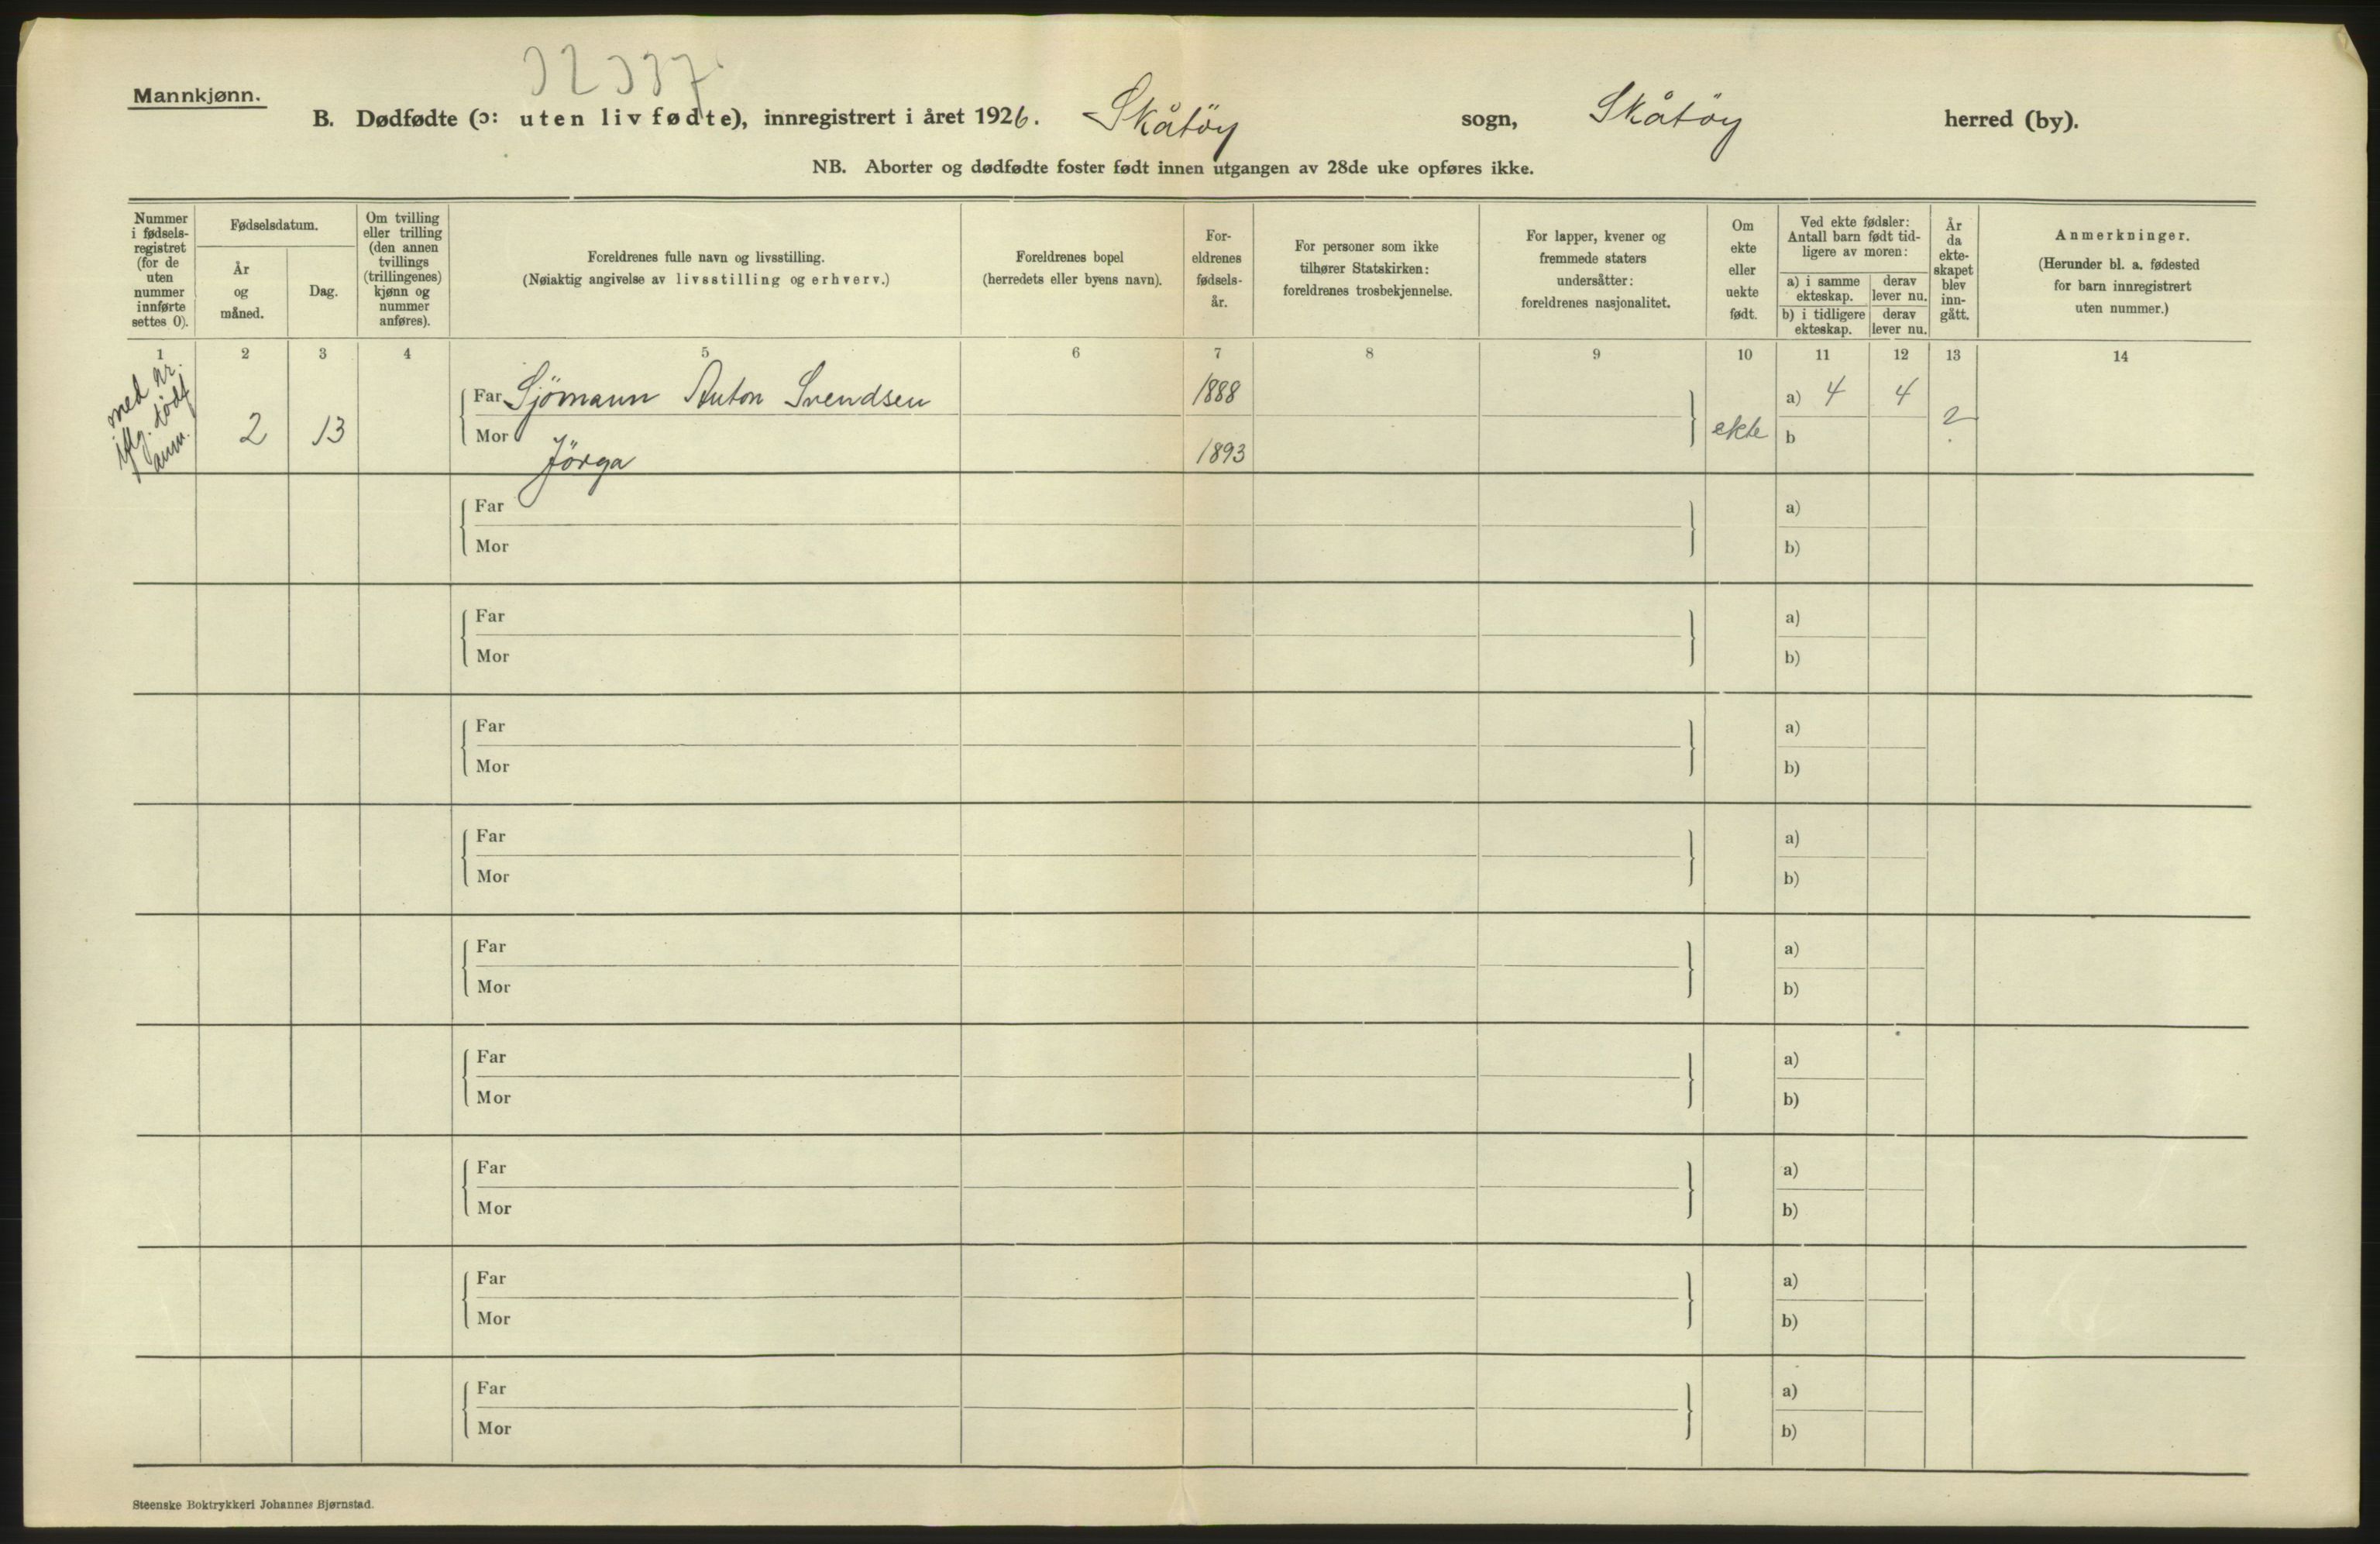 Mannkjønn.
B. Dødfødte (ɔ: uten liv fødte), innregistrert i året 1926. Skåtöy sogn, Skåtöy herred (by).
NB. Aborter og dødfødte foster født innen utgangen av 28de uke opføres ikke.
Nummer
i fødsels-
registret
(for de
uten
nummer
innførte
settes 0).
Fødselsdatum.
År
og
måned.
Dag.
Om tvilling
eller trilling
(den annen
tvillings
(trillingenes)
kjønn og
nummer
anføres).
Foreldrenes fulle navn og livsstilling.
(Nøiaktig angivelse av livsstilling og erhverv.)
Foreldrenes bopel
(herredets eller byens navn).
For-
eldrenes
fødsels-
år.
For personer som ikke
tilhører Statskirken:
foreldrenes trosbekjennelse.
For lapper, kvener og
fremmede staters
undersåtter:
foreldrenes nasjonalitet.
Om
ekte
eller
uekte
født.
Ved ekte fødsler:
Antall barn født tid-
ligere av moren:
a) i samme
ekteskap.
derav
lever nu.
b) i tidligere
ekteskap.
derav
lever nu.
År
da
ekte-
skapet
blev
inn-
gått.
Anmerkninger.
(Herunder bl. a. fødested
for barn innregistrert
uten nummer.)
1 2 3 4 5 6 7 8 9 10 11 12 13 14
med nr.
iflg. dödf
anm.
2 13
Far Sjömann Anton Svendsen 1888
Mor Jörga 1893
ekte
a) 4 4
b
?
Far a)
Mor b)
Far a)
Mor b)
Far a)
Mor b)
Far a)
Mor b)
Far a)
Mor b)
Far a)
Mor b)
Far a)
Mor b)
Far a)
Mor b)
Far a)
Mor b)
Steenske Boktrykkeri Johannes Bjørnstad.